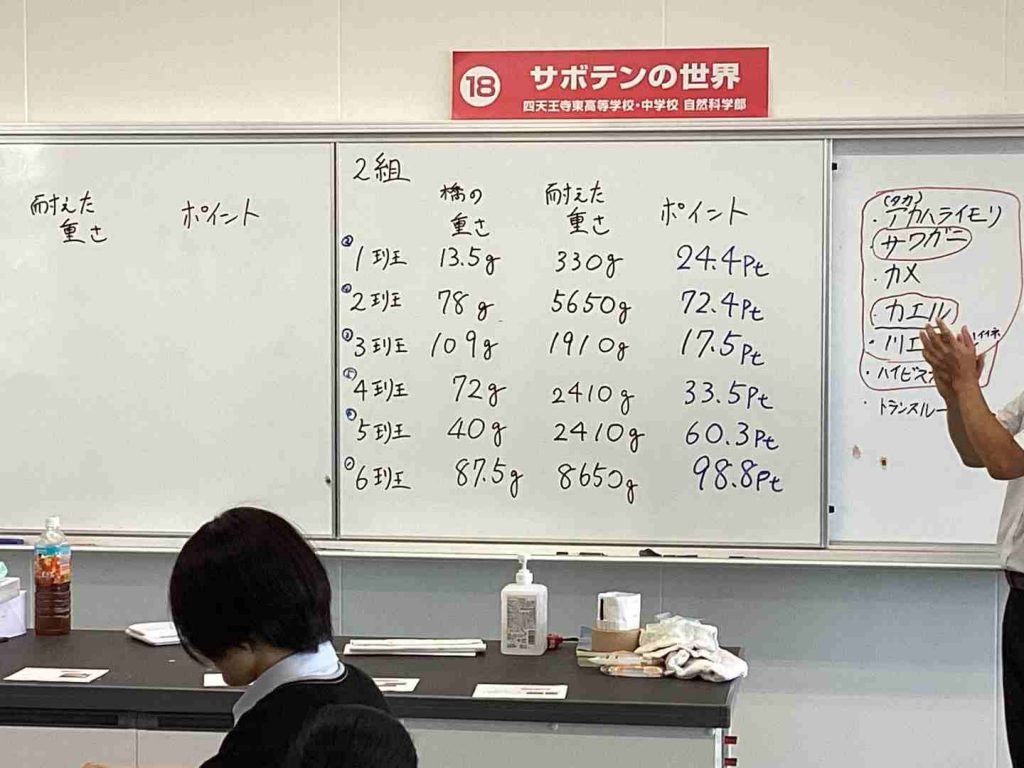 18 サボテンの世界
四天王寺東高等学校・中学校 自然科学部
耐えた
重さ
ポイント
2組
橋の
重さ
耐えた
重さ
ポイント
1班 13.5g 330g 24.4Pt
2班 78g 5650g 72.4Pt
3班 109g 1910g 17.5Pt
4班 72g 2410g 33.5Pt
5班 40g 2410g 60.3Pt
6班 87.5g 8650g 98.8Pt
・アカハライモリ
・サワガニ
・カメ
・カエル
・ハイビス
・トランスルー